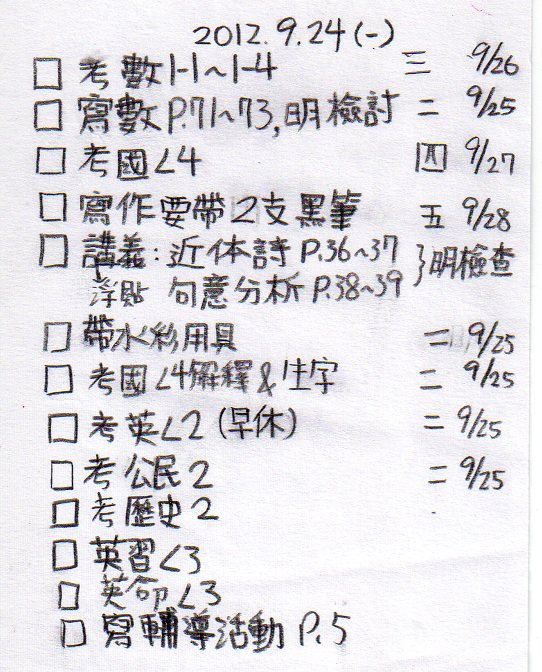 2012.9.24(一)
□ 考數1-1~1-4 三 9/26
□ 寫數P.71~73,明檢討 二 9/25
□ 考國L4 四 9/27
□ 寫作要帶2支黑筆 五 9/28
□ 講義:近体詩 P.36~37 }明檢查
浮貼 句意分析 P.38~39
□ 帶水彩用具 二 9/25
□ 考國L4解釋&生字 二 9/25
□ 考英L2(早休) 二 9/25
□ 考公民2 二 9/25
□ 考歷史2
□ 英習L3
□ 英命L3
□ 寫輔導活動 P.5